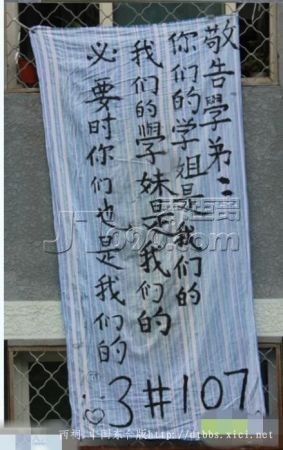 敬告學弟：
你们的学姐是我们的
我们的學妹是我们的
必要时你们也是我们的
3#107
http://dtbbs.xici.net/